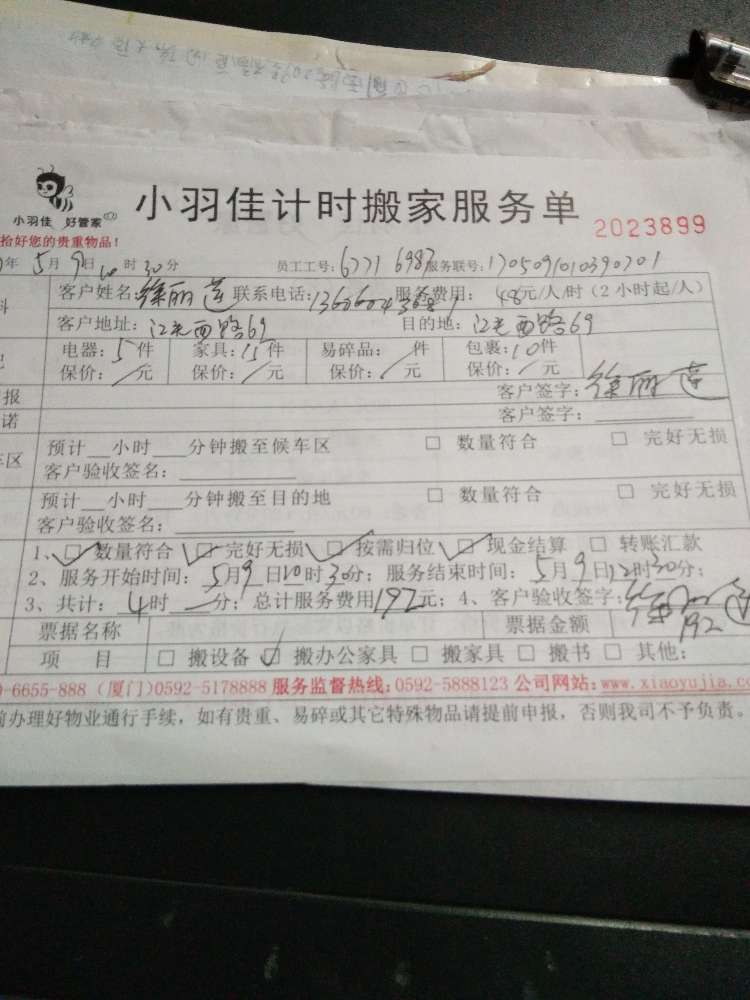 小羽佳 好管家
小羽佳计时搬家服务单 2023899
拾好您的贵重物品！
年5月9日10时30分 员工工号：6771 6987 服务联号：1705091010390701
客户姓名：徐丽莲 联系电话： 服务费用：48元/人/时（2小时起/人）
客户地址：江头西路69 目的地：江头西路69
电器：5件 家具：15件 易碎品：/件 包裹：10件
保价：/元 保价：/元 保价：/元 保价：/元
报 客户签字：徐丽莲
诺 客户签字：
车区 预计__小时__分钟搬至候车区 □ 数量符合 □ 完好无损
客户验收签名：
预计__小时__分钟搬至目的地 □ 数量符合 □ 完好无损
客户验收签名：
1、☑ 数量符合 ☑ 完好无损 ☑ 按需归位 ☑ 现金结算 □ 转账汇款
2、服务开始时间：5月9日10时30分；服务结束时间：5月9日12时30分；
3、共计：4时—分；总计服务费用192元；4、客户验收签字：
票据名称 票据金额 192
项 目 □ 搬设备 ☑ 搬办公家具 □ 搬家具 □ 搬书 □ 其他：
0-6655-888（厦门）0592-5178888 服务监督热线：0592-5888123 公司网站：www.xiaoyujia.co
前办理好物业通行手续，如有贵重、易碎或其它特殊物品请提前申报，否则我司不予负责。